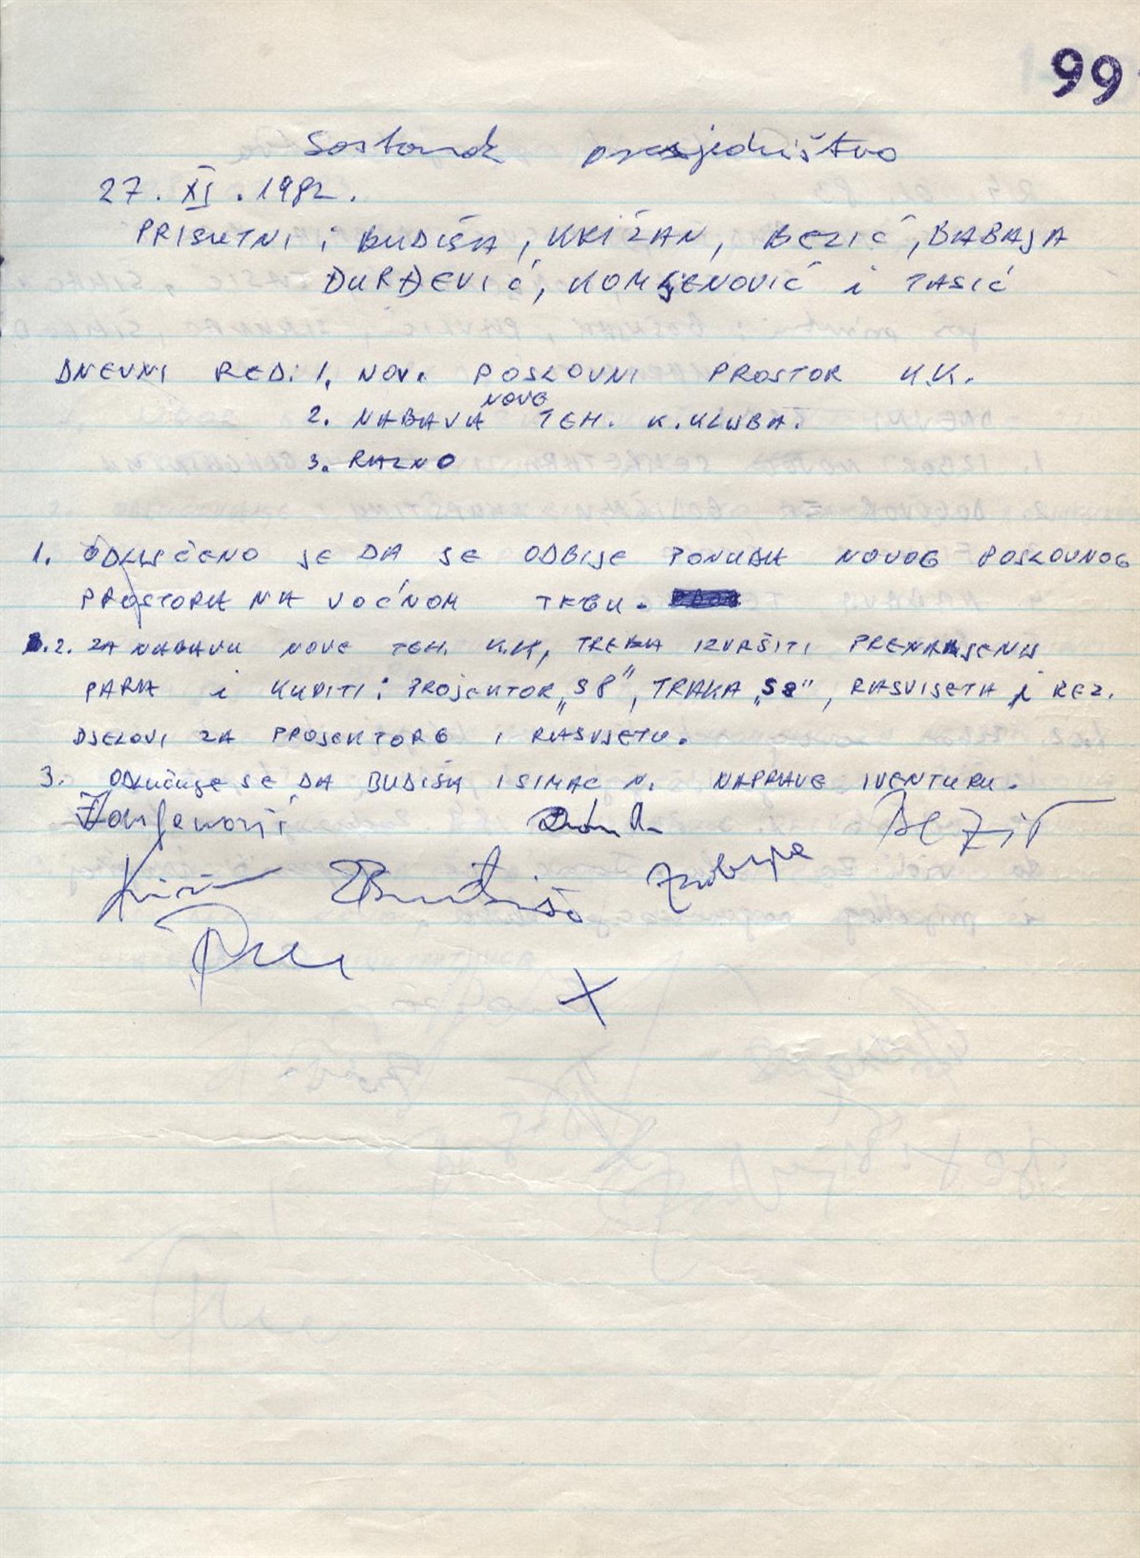 99
Sastanak predsjedništva
27. XI. 1982.
PRISUTNI: BUDIŠA, KRIŽAN, BEZIĆ, BABAJA
ĐURĐEVIĆ, KOMLJENOVIĆ i TASIĆ
DNEVNI RED: 1. NOVI POSLOVNI PROSTOR K.K.
NOVE
2. NABAVA TEH. K. KLUBA.
3. RAZNO
1. ODLUČENO JE DA SE ODBIJE PONUDA NOVOG POSLOVNOG
PROSTORA NA VOĆNOM TRGU.
2. ZA NABAVU NOVE TEH. K.K, TREBA IZVRŠITI PRENAMJENU
PARA i KUPITI: PROJEKTOR „S8", TRAKA „S8", RASVJETA i REZ.
DJELOVI ZA PROJEKTORE I RASVJETU.
3. ODLUČUJE SE DA BUDIŠA I SIMAC N. NAPRAVE IVENTURU.
Komljenović BEZIĆ
Križan Budiša Babaja